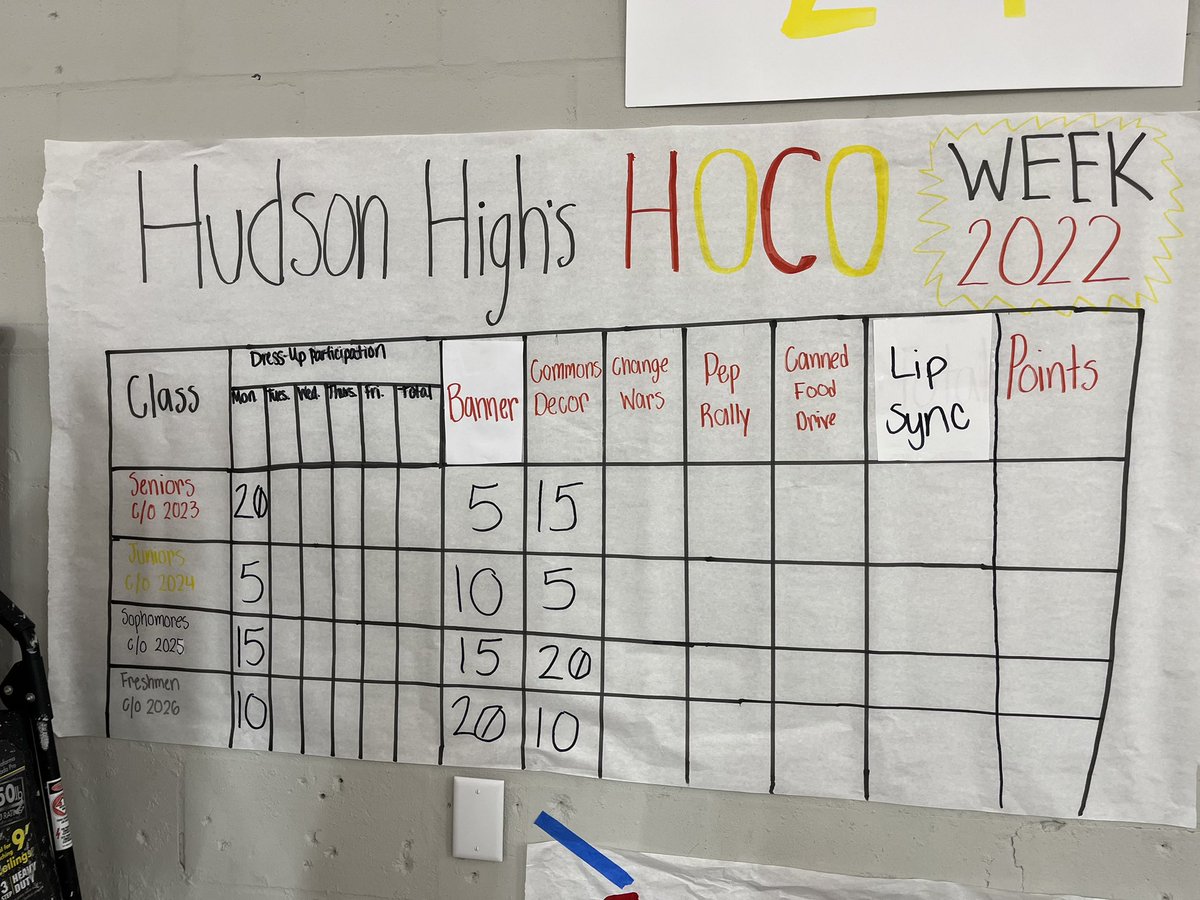 Hudson High's HOCO WEEK
2022
Class
Dress-Up Participation
Mon. Tues. Wed. Thurs. Fri. Total
Banner
Commons
Decor
Change
Wars
Pep
Rally
Canned
Food
Drive
Lip
Sync
Points
Seniors
c/o 2023
20 5 15
Juniors
c/o 2024
5 10 5
Sophomores
c/o 2025
15 15 20
Freshmen
c/o 2026
10 20 10
HEAVY
DUTY